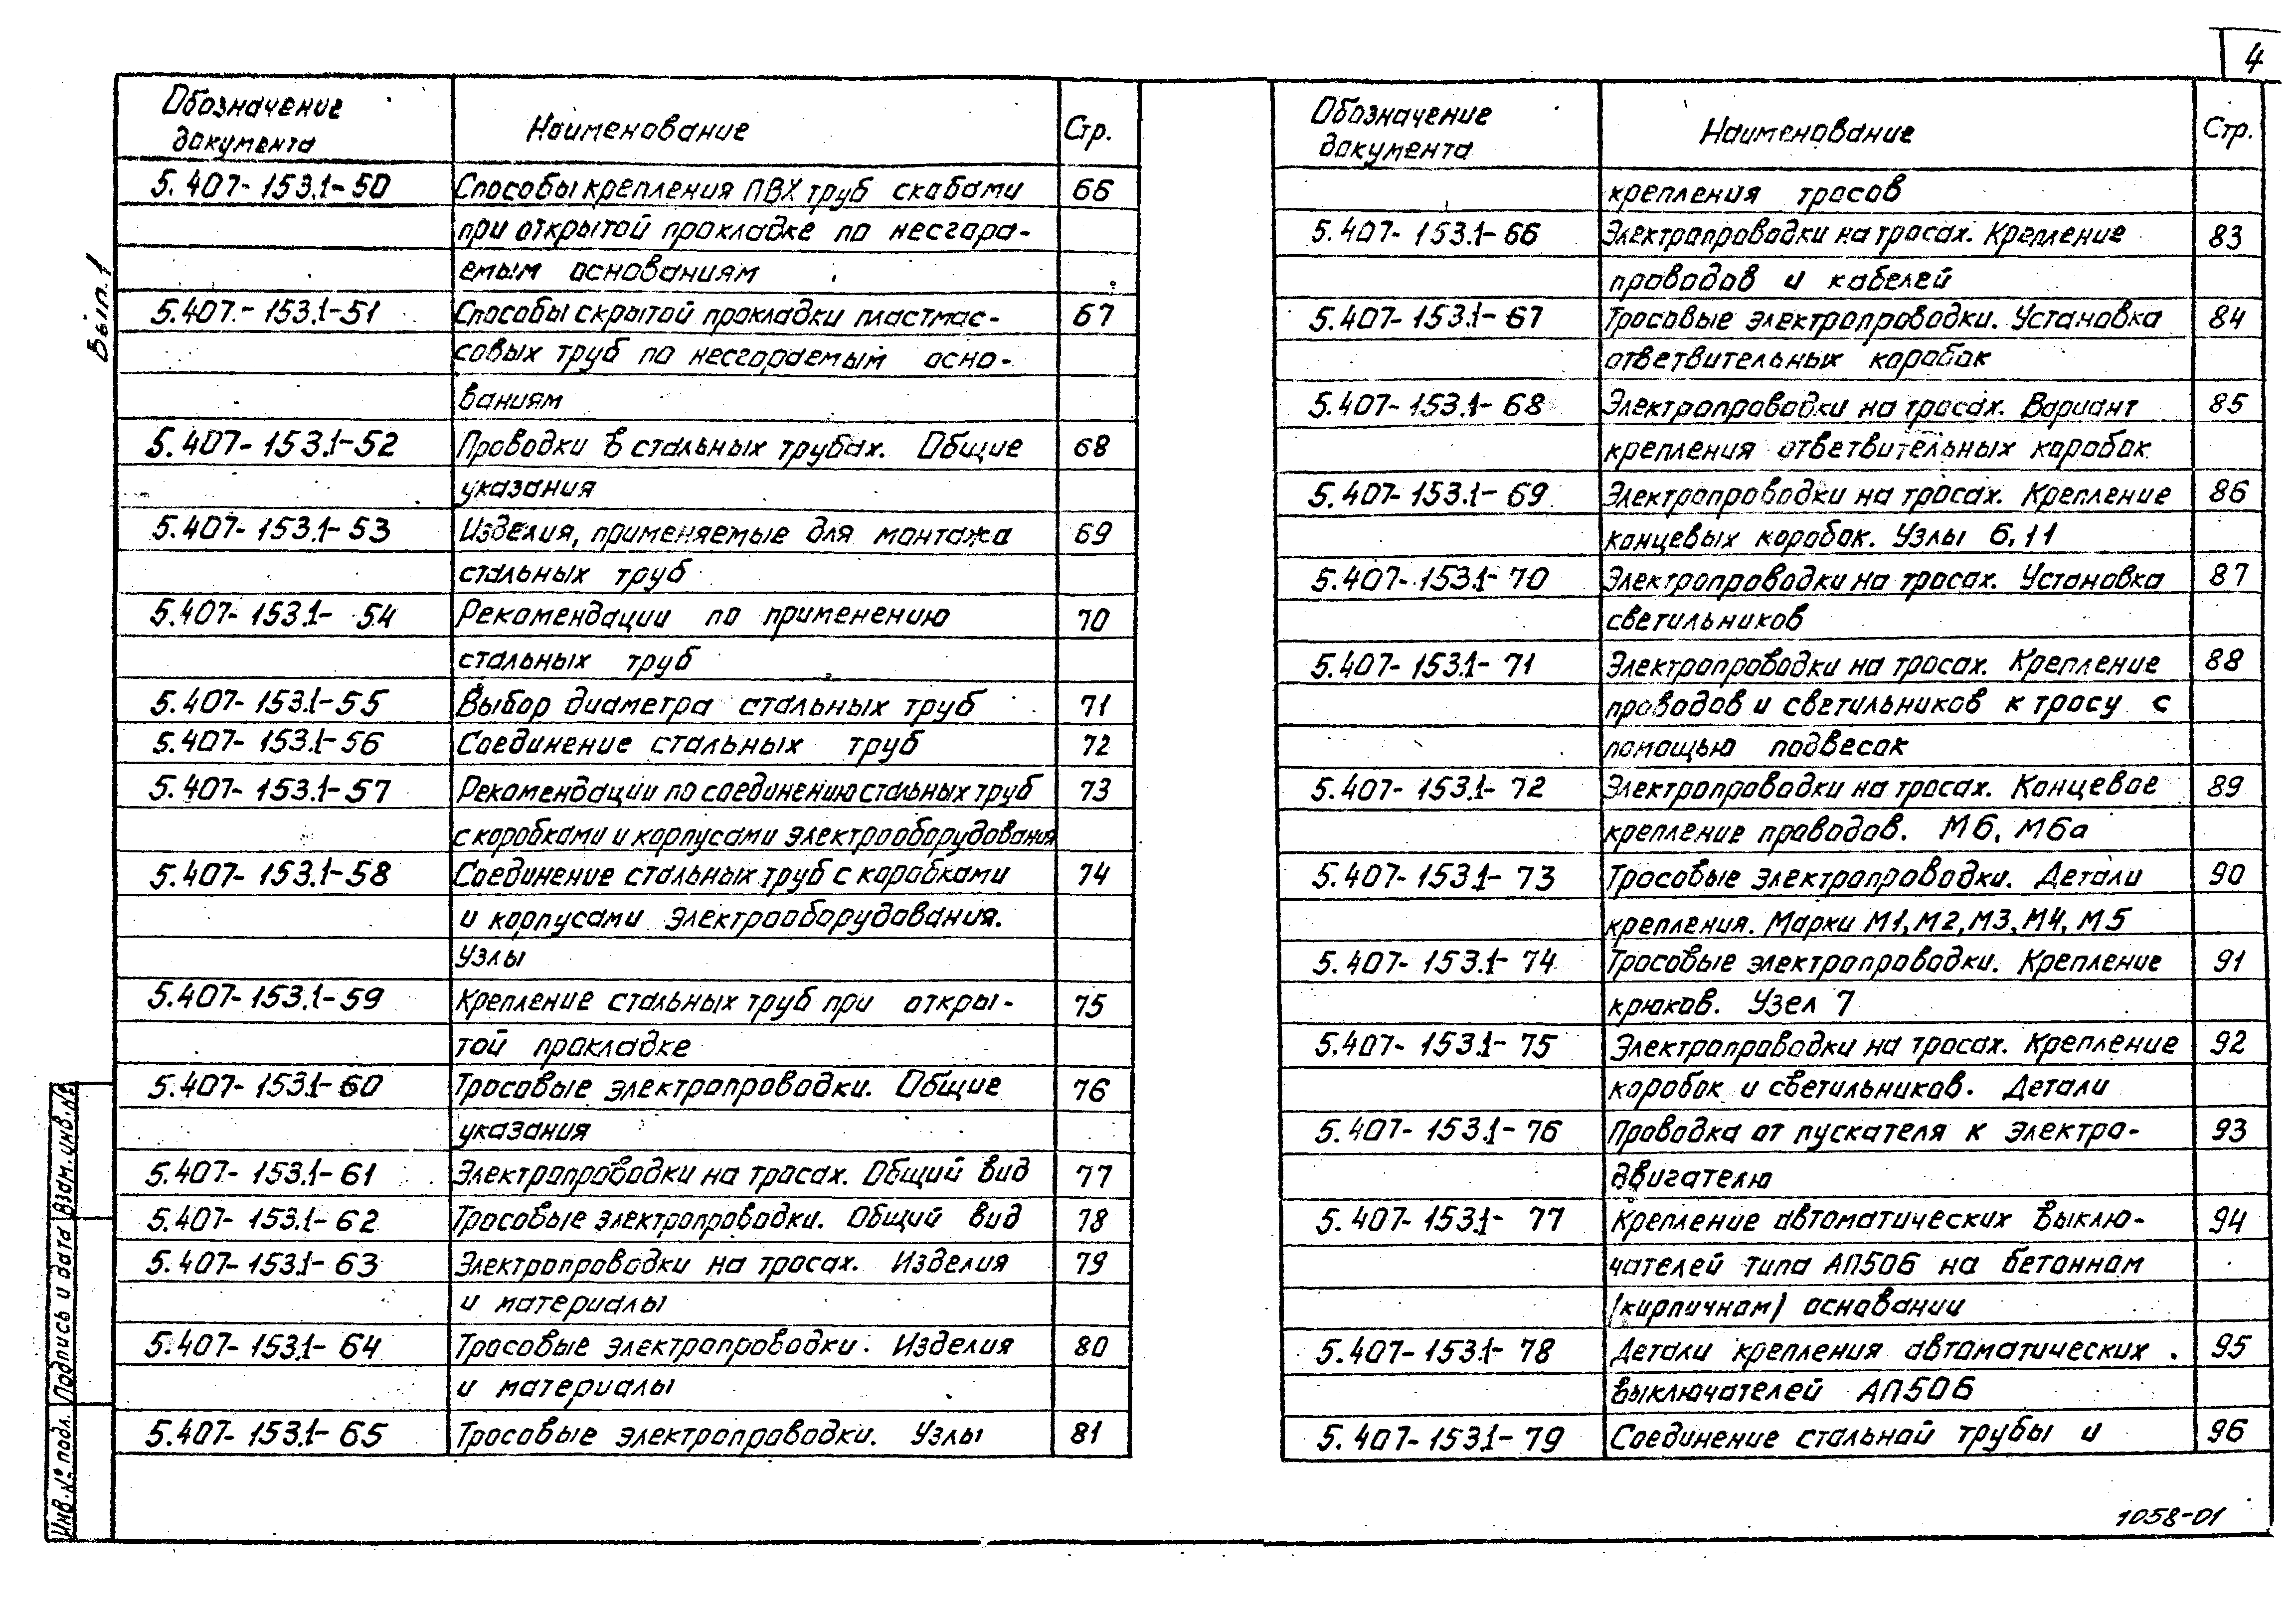 4
Вып.1
Обозначение документа Наименование Стр.
5.407-153.1-50 Способы крепления ПВХ труб скобами 66
при открытой прокладке по несгора-
емым основаниям
5.407-153.1-51 Способы скрытой прокладки пластмас- 67
совых труб по несгораемым осно-
ваниям
5.407-153.1-52 Проводки в стальных трубах. Общие 68
указания
5.407-153.1-53 Изделия, применяемые для монтажа 69
стальных труб
5.407-153.1-54 Рекомендации по применению 70
стальных труб
5.407-153.1-55 Выбор диаметра стальных труб 71
5.407-153.1-56 Соединение стальных труб 72
5.407-153.1-57 Рекомендации по соединению стальных труб 73
с коробками и корпусами электрооборудования
5.407-153.1-58 Соединение стальных труб с коробками 74
и корпусами электрооборудования.
Узлы
5.407-153.1-59 Крепление стальных труб при откры- 75
той прокладке
5.407-153.1-60 Тросовые электропроводки. Общие 76
указания
5.407-153.1-61 Электропроводки на тросах. Общий вид 77
5.407-153.1-62 Тросовые электропроводки. Общий вид 78
5.407-153.1-63 Электропроводки на тросах. Изделия 79
и материалы
5.407-153.1-64 Тросовые электропроводки. Изделия 80
и материалы
5.407-153.1-65 Тросовые электропроводки. Узлы 81
Обозначение документа Наименование Стр.
крепления тросов
5.407-153.1-66 Электропроводки на тросах. Крепление 83
проводов и кабелей
5.407-153.1-67 Тросовые электропроводки. Установка 84
ответвительных коробок
5.407-153.1-68 Электропроводки на тросах. Вариант 85
крепления ответвительных коробок
5.407-153.1-69 Электропроводки на тросах. Крепление 86
концевых коробок. Узлы 6,11
5.407-153.1-70 Электропроводки на тросах. Установка 87
светильников
5.407-153.1-71 Электропроводки на тросах. Крепление 88
проводов и светильников к тросу с
помощью подвесок
5.407-153.1-72 Электропроводки на тросах. Концевое 89
крепление проводов. М6, М6а
5.407-153.1-73 Тросовые электропроводки. Детали 90
крепления. Марки М1, М2, М3, М4, М5
5.407-153.1-74 Тросовые электропроводки. Крепление 91
крюков. Узел 7
5.407-153.1-75 Электропроводки на тросах. Крепление 92
коробок и светильников. Детали
5.407-153.1-76 Проводка от пускателя к электро- 93
двигателю
5.407-153.1-77 Крепление автоматических выклю- 94
чателей типа АП506 на бетонном
(кирпичном) основании
5.407-153.1-78 Детали крепления автоматических 95
выключателей АП506
5.407-153.1-79 Соединение стальной трубы и 96
Инв. № подл. Подпись и дата Взам. инв. №
1058-01